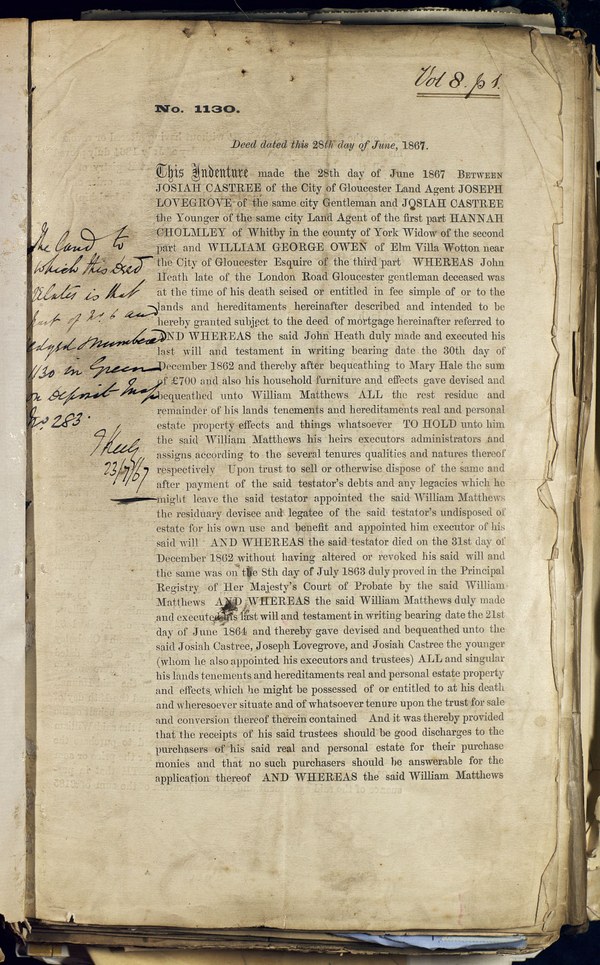 Vol 8. p 1.
No. 1130.
Deed dated this 28th day of June, 1867.
This Indenture made the 28th day of June 1867 BETWEEN
JOSIAH CASTREE of the City of Gloucester Land Agent JOSEPH
LOVEGROVE of the same city Gentleman and JOSIAH CASTREE
the Younger of the same city Land Agent of the first part HANNAH
CHOLMLEY of Whitby in the county of York Widow of the second
part and WILLIAM GEORGE OWEN of Elm Villa Wotton near
the City of Gloucester Esquire of the third part WHEREAS John
Heath late of the London Road Gloucester gentleman deceased was
at the time of his death seised or entitled in fee simple of or to the
lands and hereditaments hereinafter described and intended to be
hereby granted subject to the deed of mortgage hereinafter referred to
AND WHEREAS the said John Heath duly made and executed his
last will and testament in writing bearing date the 30th day of
December 1862 and thereby after bequeathing to Mary Hale the sum
of £700 and also his household furniture and effects gave devised and
bequeathed unto William Matthews ALL the rest residue and
remainder of his lands tenements and hereditaments real and personal
estate property effects and things whatsoever TO HOLD unto him
the said William Matthews his heirs executors administrators and
assigns according to the several tenures qualities and natures thereof
respectively Upon trust to sell or otherwise dispose of the same and
after payment of the said testator's debts and any legacies which he
might leave the said testator appointed the said William Matthews
the residuary devisee and legatee of the said testator's undisposed of
estate for his own use and benefit and appointed him executor of his
said will AND WHEREAS the said testator died on the 31st day of
December 1862 without having altered or revoked his said will and
the same was on the 8th day of July 1863 duly proved in the Principal
Registry of Her Majesty's Court of Probate by the said William
Matthews AND WHEREAS the said William Matthews duly made
and executed his last will and testament in writing bearing date the 21st
day of June 1864 and thereby gave devised and bequeathed unto the
said Josiah Castree, Joseph Lovegrove, and Josiah Castree the younger
(whom he also appointed his executors and trustees) ALL and singular
his lands tenements and hereditaments real and personal estate property
and effects which he might be possessed of or entitled to at his death
and wheresoever situate and of whatsoever tenure upon the trust for sale
and conversion thereof therein contained And it was thereby provided
that the receipts of his said trustees should be good discharges to the
purchasers of his said real and personal estate for their purchase
monies and that no such purchasers should be answerable for the
application thereof AND WHEREAS the said William Matthews
The land to
which this deed
relates is that
part of No. 6 and
edged & numbered
1130 in Green
on Deposit Map
No. 283.
23/7/67